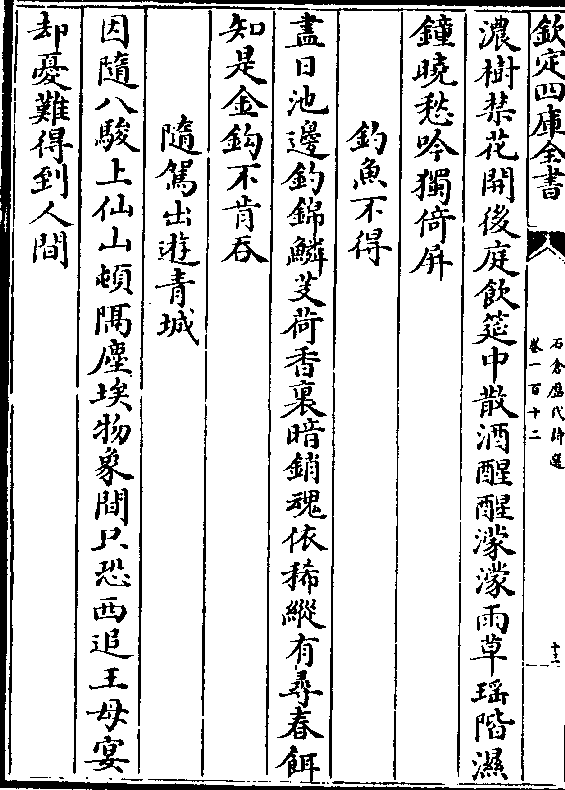 欽定四庫全書
石倉歷代詩選
卷一百十二
十二
濃樹禁花開後庭飲筵中散酒醒醒濛濛雨草瑶階濕
鐘曉愁吟獨倚屏
釣魚不得
盡日池邊釣錦鱗芰荷香裏暗銷魂依稀縱有尋春餌
知是金鈎不肯吞
隨駕出遊青城
因隨八駿上仙山頓隔塵埃物象間只恐西追王母宴
却憂難得到人間